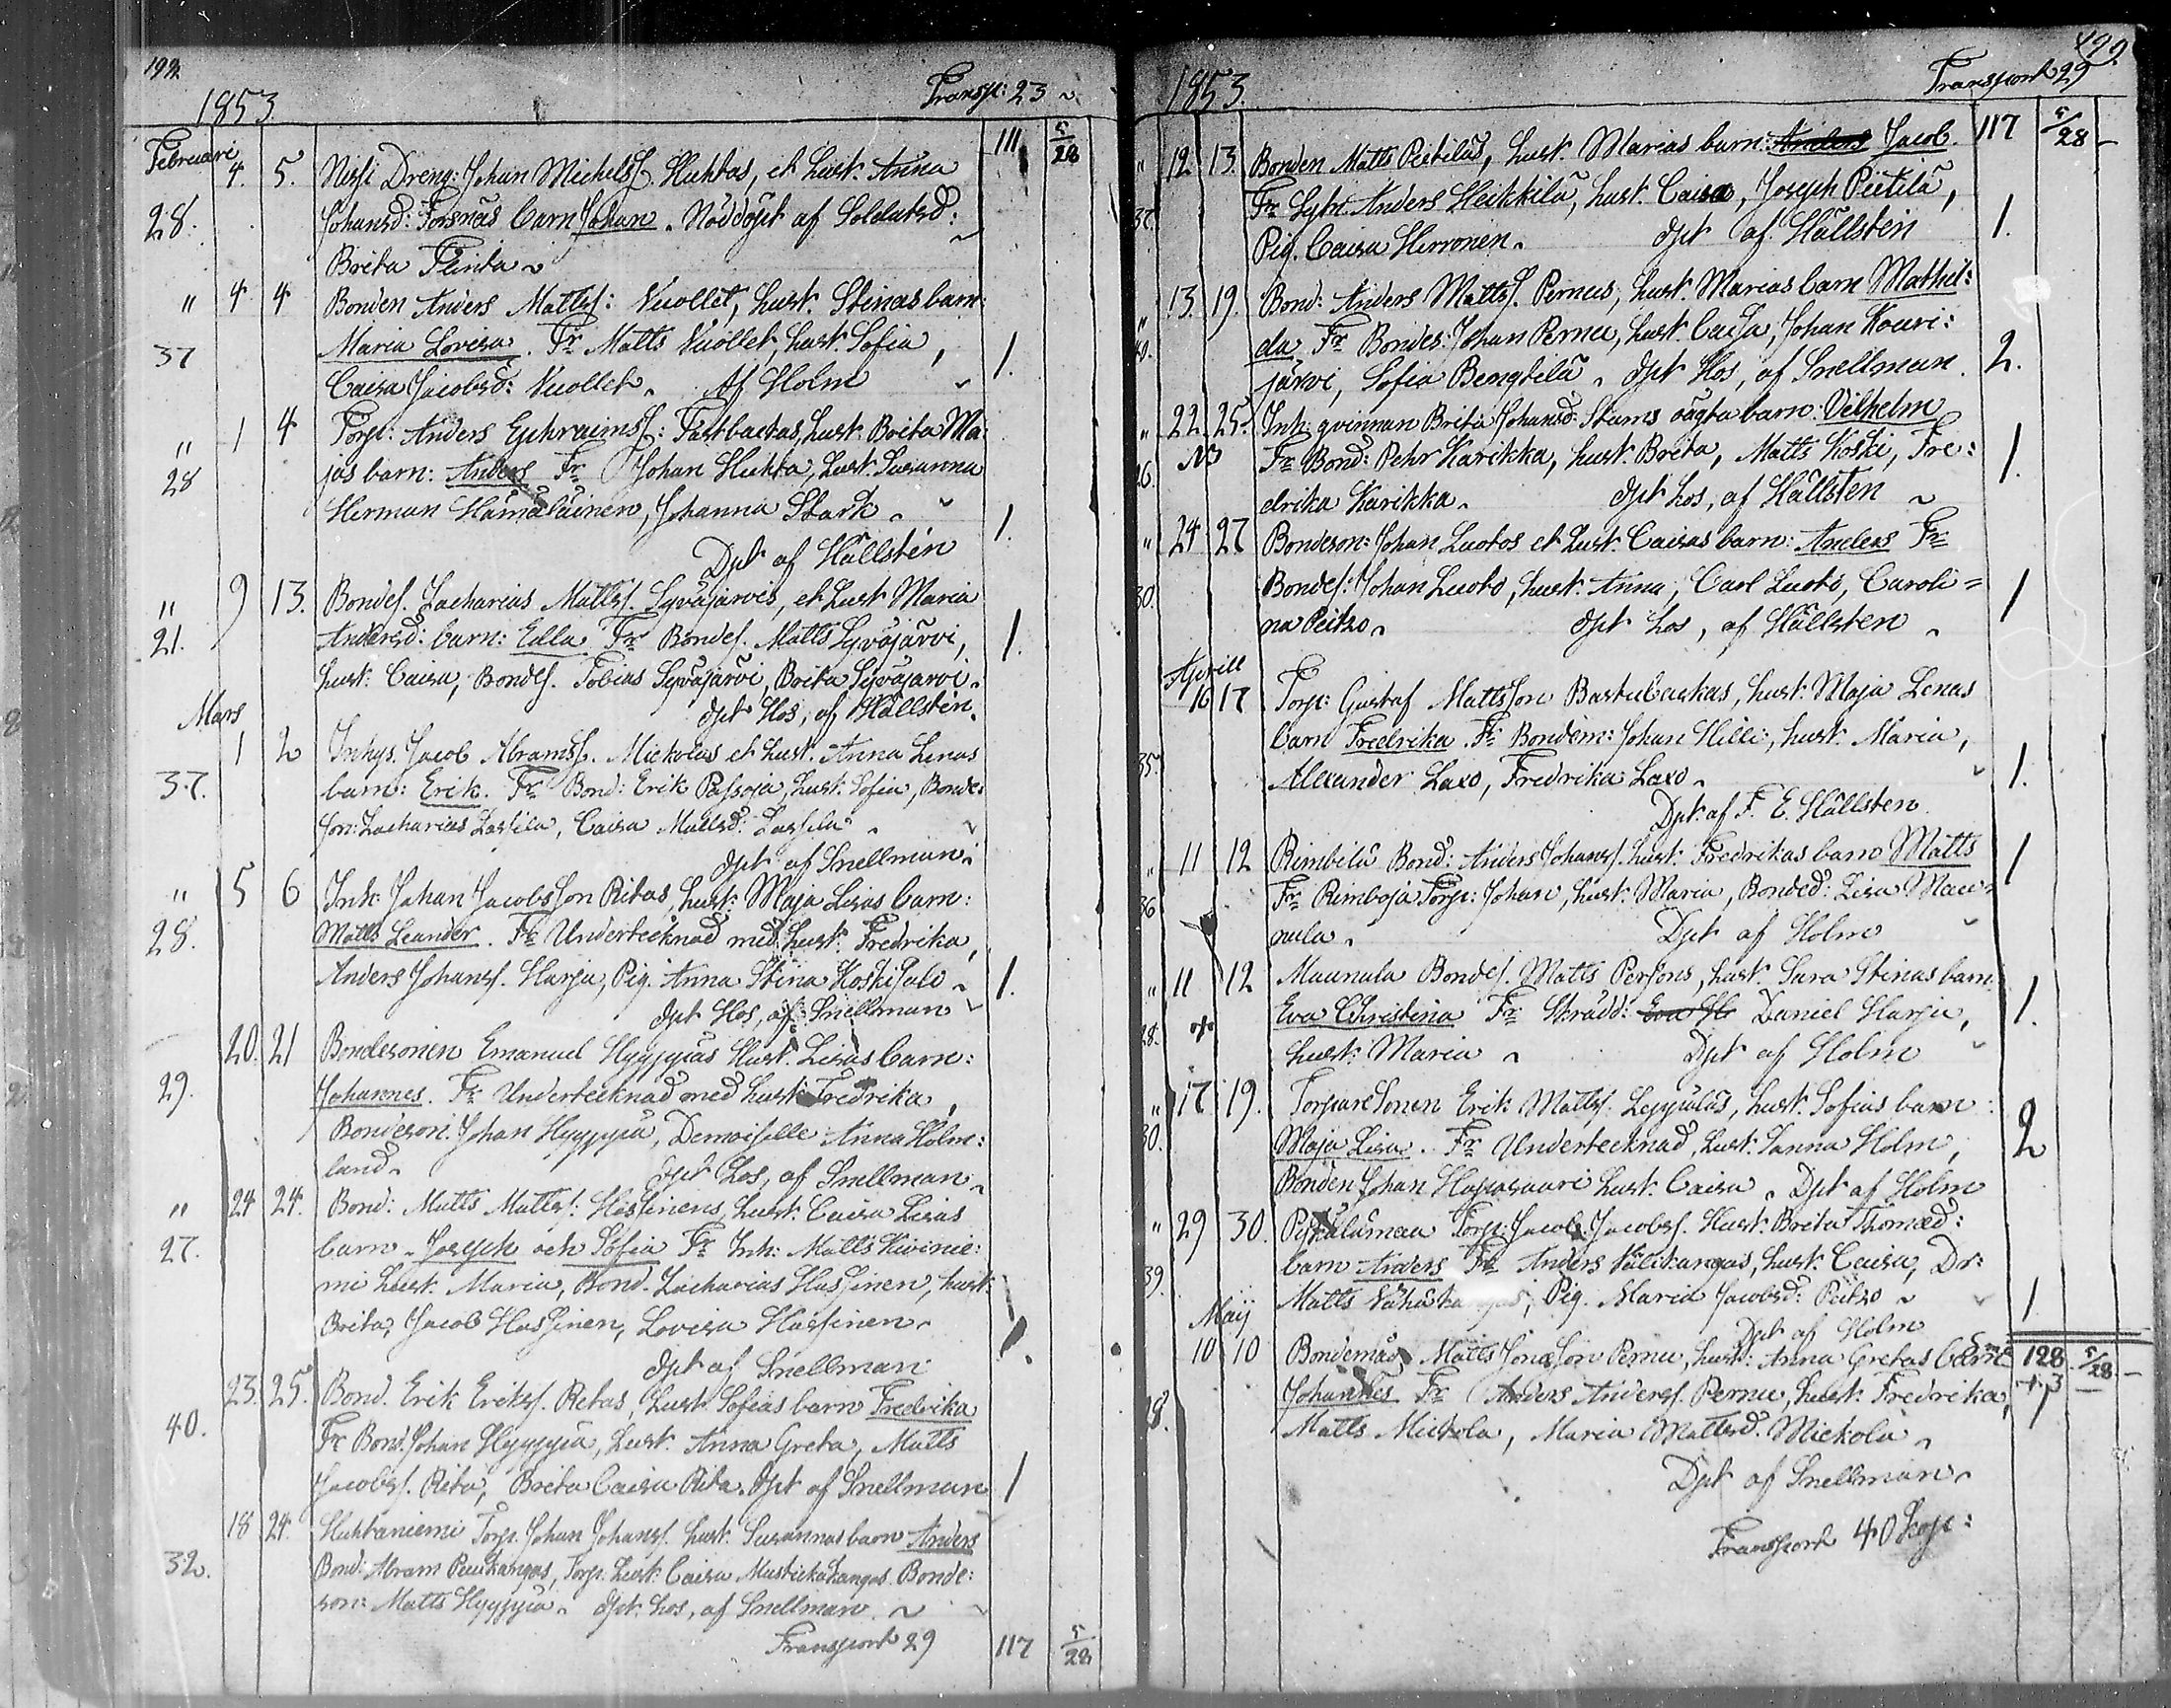 1853
Transp: 23
Februari 4. 5. Nissi Dreng: Johan Michelss. Huhtas, et hust. Anna 111 5/28
28. Johansd: Forsnäs barn Johan. Nöddöpt af Soldatsd:
Brita Flinta
" 4 4 Bonden Anders Mattss: Vuollet, hust. Stinas barn:
37 Maria Lovisa. Fr Matts Vuollet, hust. Sofia, 1.
Caisa Jacobsd: Vuollet. Af Holm
" 1 4 Torp: Anders Ephraimss: Fastbackas, hust. Brita Ma:
28 jas barn: Anders Fr Johan Huhta, hust. Susanna
Herman Hämäläinen, Johanna Stark. 1.
Dpt af Hällstén
" 9 13. Bondes. Zacharias Mattss. Syväjärvis, et hust Maria
21. Andersd: barn: Ella Fr Bondes. Matts Syväjärvi, 1.
hust: Caisa, Bondes. Tobias Syväjärvi, Brita Syväjärvi.
Mars dpt hos, af Hällstén.
1 2 Inhys. Jacob Abramss. Mickolas et hust. Anna Lenas
37. barn: Erik. Fr Bond: Erik Passoja, hust. Sofia, Bonde:
son: Zacharias Lassila, Caisa Mattsd: Lassila
dpt af Snellman.
" 5 6 Inh: Johan Jacobsson Ritas, hust: Maja Lisas barn:
28. Matts Leander. Fr Undertecknad med hust. Fredrika,
Anders Johanss. Harja, Pig. Anna Stina Koskisalo 1.
dpt hos, af Snellman
20. 21 Bondesonen Emanuel Hyyppäs Hust. Lisas barn:
29. Johannes. Fr Undertecknad med hust Fredrika,
Bondeson: Johan Hyyppä, Demoiselle Anna Holm:
land. dpt hos, af Snellman
" 24 24. Bond: Matts Mattss: Hassinens, hust: Caisa Lisas
27. barn Joseph och Sofia Fr Inh: Matts Kivinie:
mi hust. Maria, Bond. Zacharias Hassinen, hust:
Brita, Jacob Hassinen, Lovisa Hassinen. 1.
dpt af Snellman
23. 25. Bond. Erik Erikss. Ritas, hust Sofias barn Fredrika
40. Fr Bond. Johan Hyyppä, hust. Anna Greta, Matts
Jacobss. Rita, Brita Caisa Rita. dpt af Snellman 1
18 24. Huhtaniemi Torp. Johan Johanss. hust. Susannas barn Anders
32. Bond: Abram Puukangas, Torp. hust: Caisa Mustickakangas. Bonde:
son: Matts Hyyppä. dpt. hos, af Snellman.
Transport 29 117 5/28
1853.
Transport 29
" 12 13. Bonden Matts Pietiläs, hust. Marias barn: Anders Jacob. 117 5/28
37. Fr Sytn: Anders Heikkilä, hust. Caisa, Joseph Pietilä,
Pig. Caisa Herronen. dpt af Hällstén 1.
" 13. 19. Bond: Anders Mattss. Pernus, hust. Marias barn Mathil:
da Fr Bondes: Johan Pernu, hust. Caisa, Johan Kouri:
järvi, Sofia Bengtilä. dpt hos, af Snellman. 2.
" 22. 25. Inh: qvinnan Brita Johansd: Skums oägta barn: Vilhelm
26. Fr Bond: Pehr Karikka, hust. Brita, Matts Koski, Fre: 1.
drika Karikka. dpt hos, af Hällstén
" 24 27 Bondeson: Johan Luotos et hust. Caisas barn: Anders Fr
30. Bondes: Johan Luoto, hust. Anna, Carl Luoto, Caroli= 1
na Peitzo. dpt hos, af Hällstén
Aprill
16 17 Torp: Gustaf Mattsson Bastubackas, hust. Maja Lenas
35. barn Fredrika. Fr Bondem: Johan Hilli, hust. Maria,
Alexander Laxo, Fredrika Laxo. 1.
Dpt af F. E. Hällstén.
" 11 12 Rimbilä Bond: Anders Johanss. hust. Fredrikas barn Matts 1
36 Fr Rimboja Torp: Johan, hust. Maria, Bonded: Lisa Mau=
nula. Dpt af Holm
" 11 12 Maunula Bondes. Matts Perssons, hust. Sara Stinas barn:
28. Eva Christina Fr Skrädd: Daniel Harju, 1.
hust: Maria Dpt af Holm
" 17 19. Torparesonen Erik Mattss. Leppäläs, hust. Sofias barn:
30. Maja Lisa. Fr Undertecknad, hust. Sanna Holm, 2
Bonden Johan Haapasaari hust. Caisa. Dpt af Holm
" 29 30. Torp: Jacob Jacobss. Hust. Brita Thomæd:
39. barn Anders Fr Anders Välikangas, hust. Caisa, Dr:
Matts, Pig. Maria Jacobsd: Peitzo 1
Maij Dpt af Holm
10 10 Bondemåg Matts Jonasson Pernu, hust: Anna Gretas barn Sma 128 5/28
28. Johannes Fr Anders Anderss. Pernu, hust: Fredrika,
Matts Mickola, Maria Mattsd. Mickola
Dpt af Snellman.
Transport 40 kop: